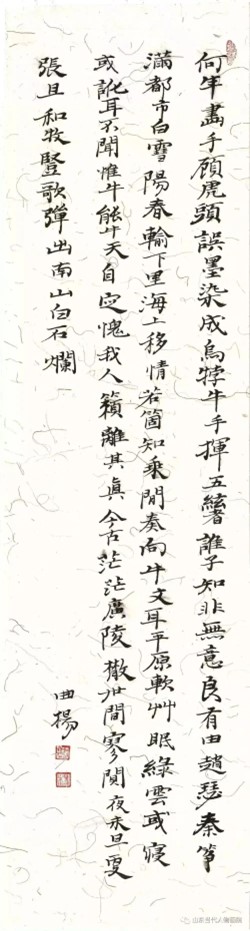 何年畫手顧虎頭誤墨染成烏牸牛手揮五絃者誰子知非無意良有由趙瑟秦箏
滿都市白雪陽春輸下里海上移情若箇知乘閒奏向牛文耳平原軟艸眠綠雲或寢
或訛耳不聞惟牛能牛天自定愧我人籟離其真今古茫茫廣陵散世間寥闃夜未旦更
張且和牧豎歌彈出南山白石爛
曲楊
山东当代人物画院